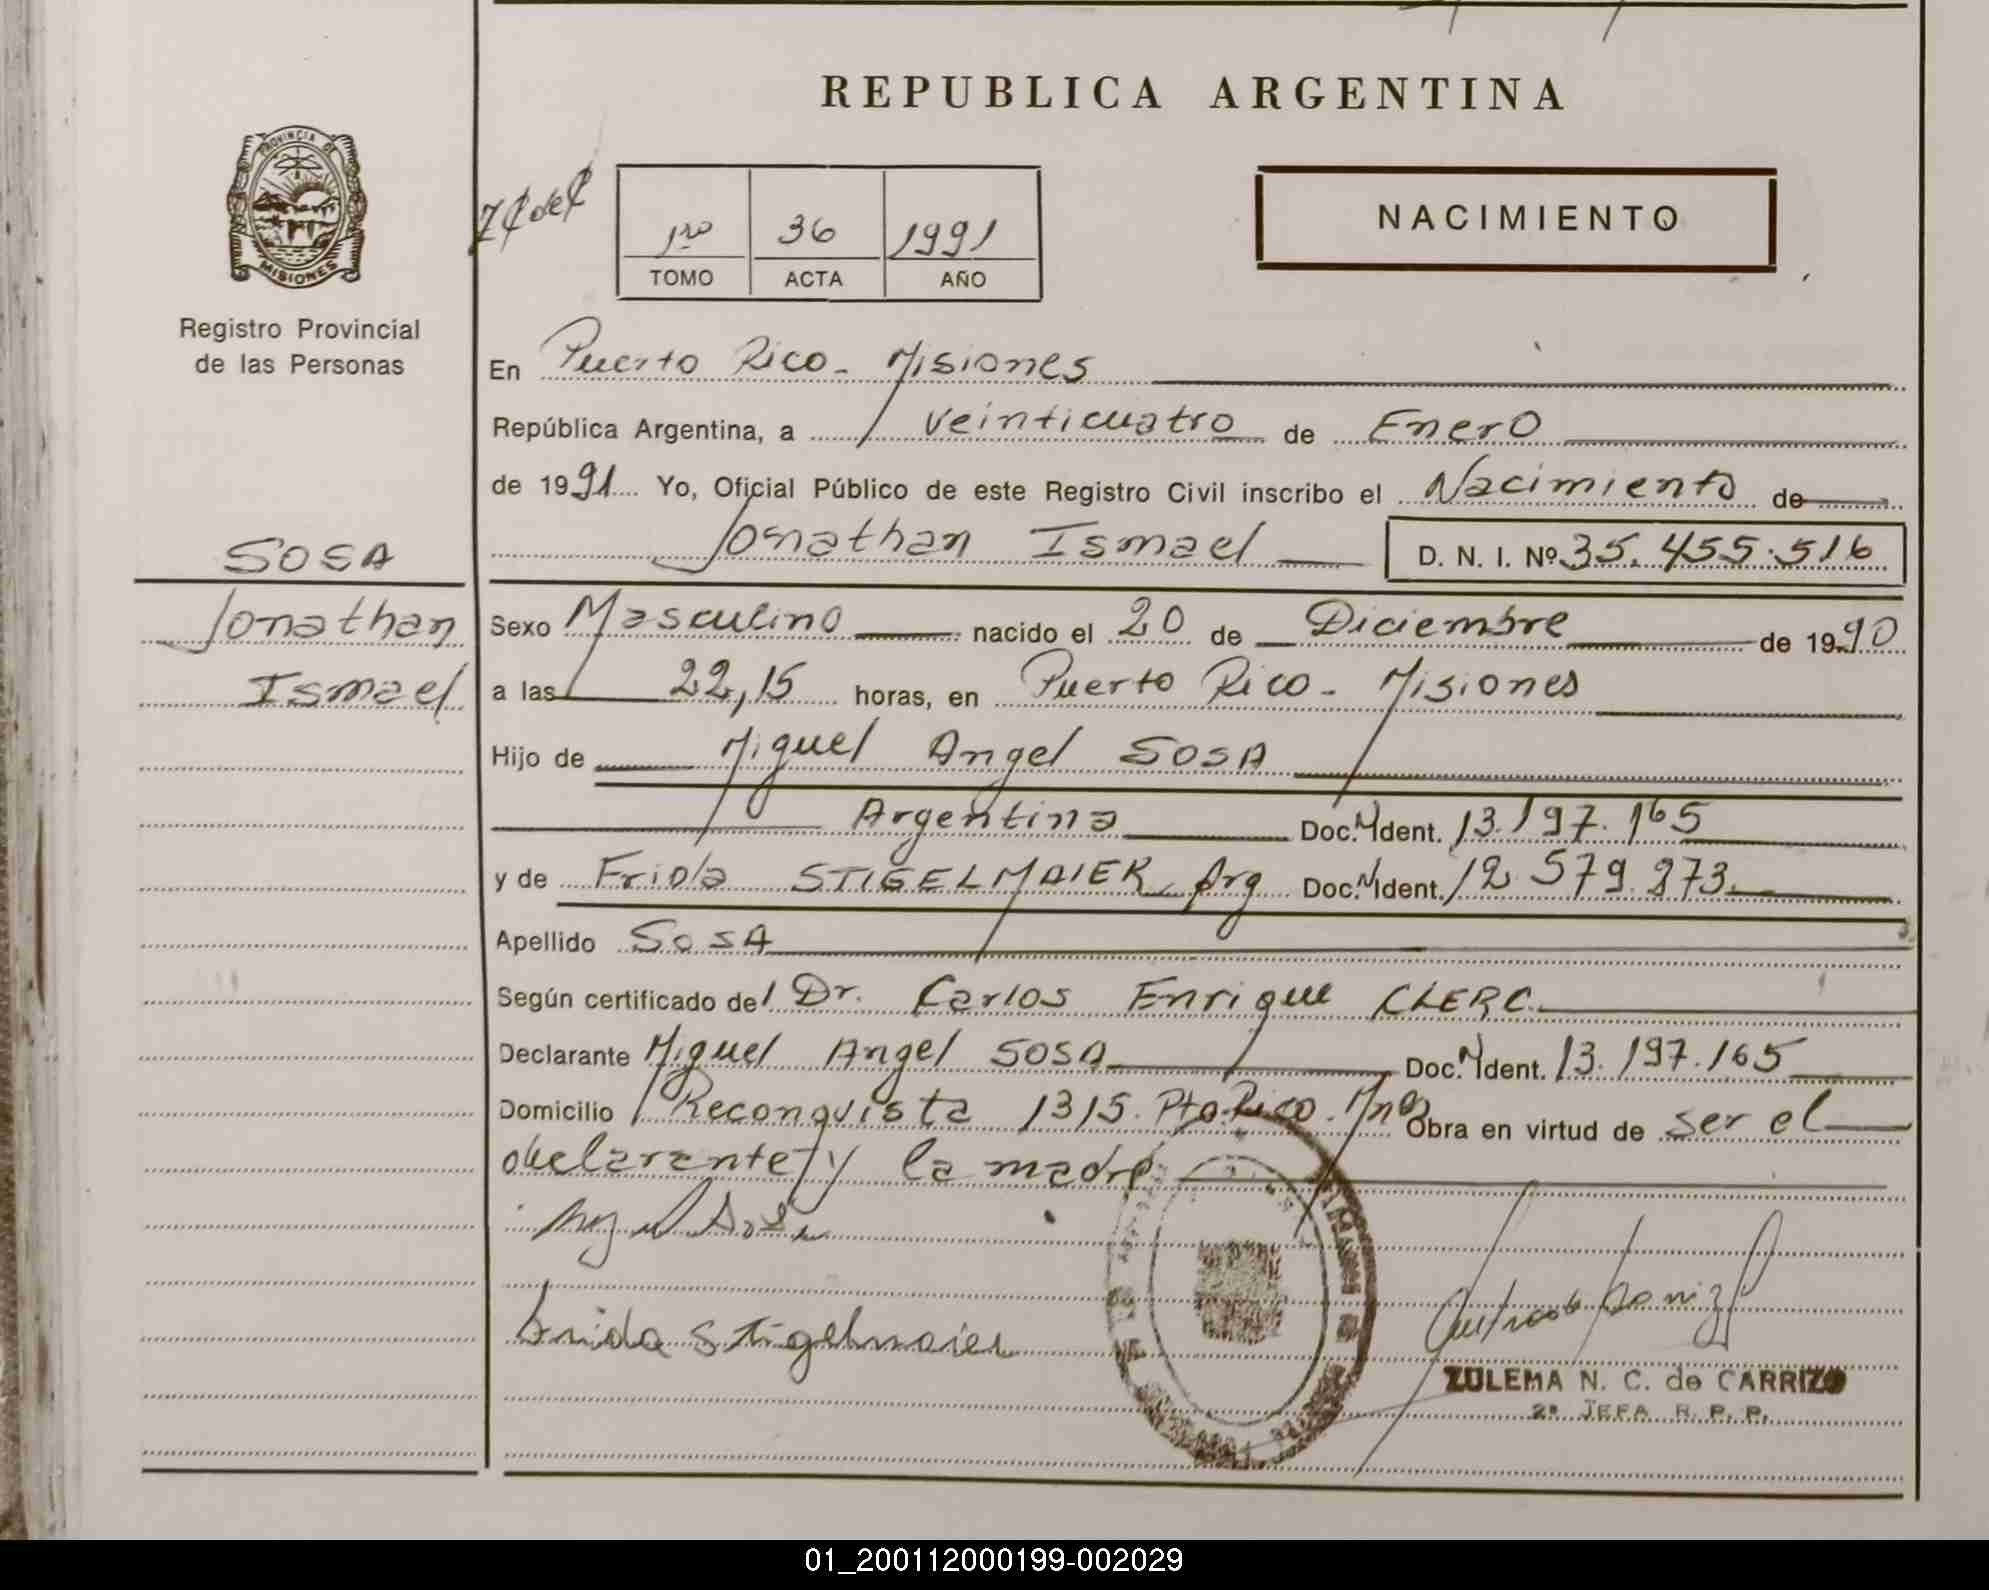 REPUBLICA ARGENTINA
PROVINCIA DE
MISIONES
Registro Provincial
de las Personas
1ro 36 1991
TOMO ACTA AÑO
NACIMIENTO
En Puerto Rico - Misiones
República Argentina, a veinticuatro de Enero
de 1991 Yo, Oficial Público de este Registro Civil inscribo el Nacimiento de
Jonathan Ismael D. N. I. Nº 35.455.516
SOSA
Jonathan
Ismael
Sexo Masculino nacido el 20 de Diciembre de 1990
a las 22,15 horas, en Puerto Rico - Misiones
Hijo de Miguel Angel SOSA
Argentina Doc. N Ident. 13.197.165
y de Frida STIGELMAIER Arg Doc. N Ident. 12.579.273
Apellido SOSA
Según certificado del Dr. Carlos Enrique CLERC
Declarante Miguel Angel SOSA Doc. N Ident. 13.197.165
Domicilio Reconquista 1315. Pto Rico. Mnes Obra en virtud de ser el
declarante y la madre
Frida Stigelmaier
ZULEMA N. C. de CARRIZO
2ª JEFA R. P. P.
01_200112000199-002029